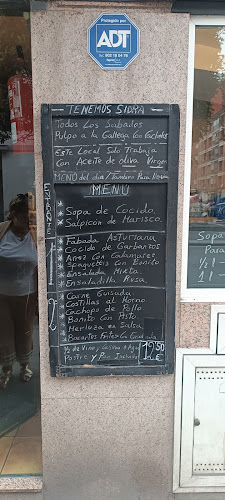 Protegido por
ADT
Tel. 902 18 04 76
TENEMOS SIDRA
Todos Los Sabados
Pulpo a la Gallega Con Cachelos
Este Local Solo Trabaja
Con Aceite de oliva Virgen
MENÚ del día / Tambien Para llevar
MENU
* Sopa de Cocido
* Salpicón de Marisco
* Fabada Asturiana
* Cocido de Garbanzos
* Arroz Con Calamares
* Spaguettis Con Bonito
* Ensalada Mixta
* Ensaladilla Rusa
* Carne Guisada
* Costillas al Horno
* Cachopo de Pollo
* Bonito Con Pisto
* Merluza en Salsa
½ de Vino y Casera o Agua
Postre y Pan Incluido
12'50
€
Sopa
Para
½ l
1 l